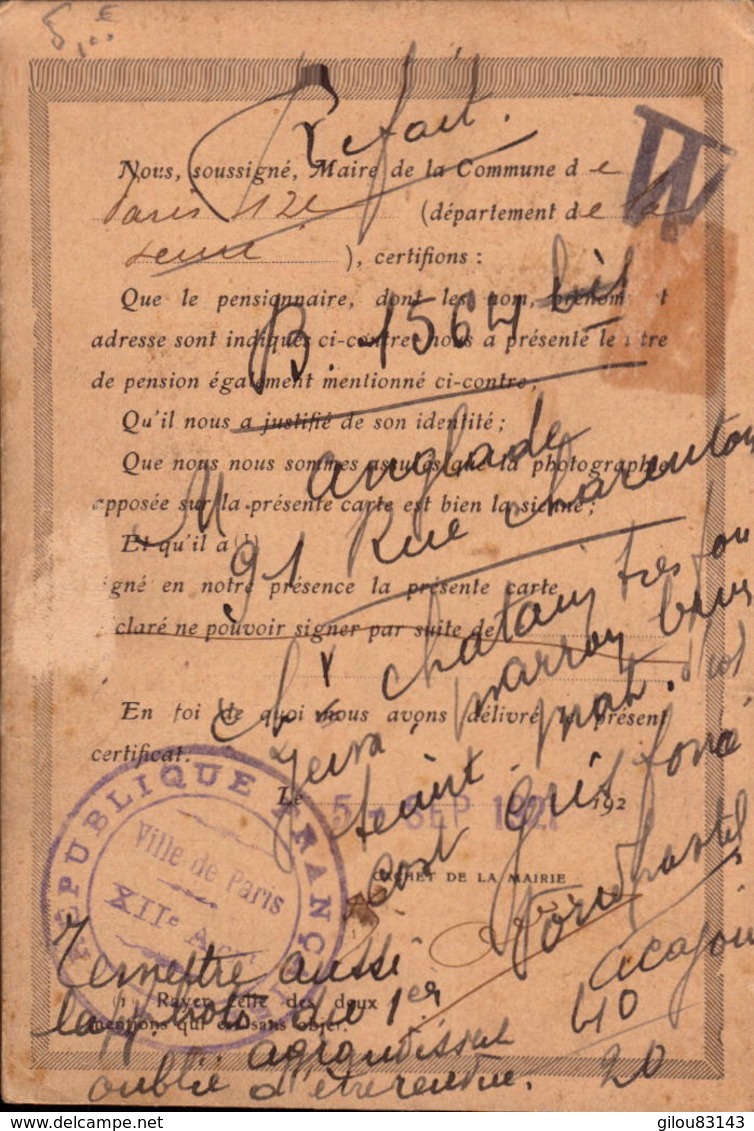 5,00 €
Refait.
Nous, soussigné, Maire de la Commune de
Paris 12e (département de la
Seine), certifions :
Que le pensionnaire, dont les nom, prénom et
B. 1564 bis
adresse sont indiqués ci-contre, nous a présenté le titre
de pension également mentionné ci-contre;
Qu'il nous a justifié de son identité;
Que nous nous sommes assurés que la photographie
M anglade
apposée sur la présente carte est bien la sienne;
91 Rue Charenton
Et qu'il a (1)
signé en notre présence la présente carte
déclaré ne pouvoir signer par suite de
chatain très fon
yeux marron
En foi de quoi nous avons délivré le présent
certificat.
teint mat.
Le 5 - SEP 192 192
cost gris foncé
CACHET DE LA MAIRIE
RÉPUBLIQUE FRANÇ
Ville de Paris
XIIe Arr
Fond pastel
acajou
remettre aussi
(1) Rayer celle des deux
mentions qui est sans objet.
la photo du 1er
agrandissement 40
oublié d'être rendue. 20
delcampe.net
gilou83143